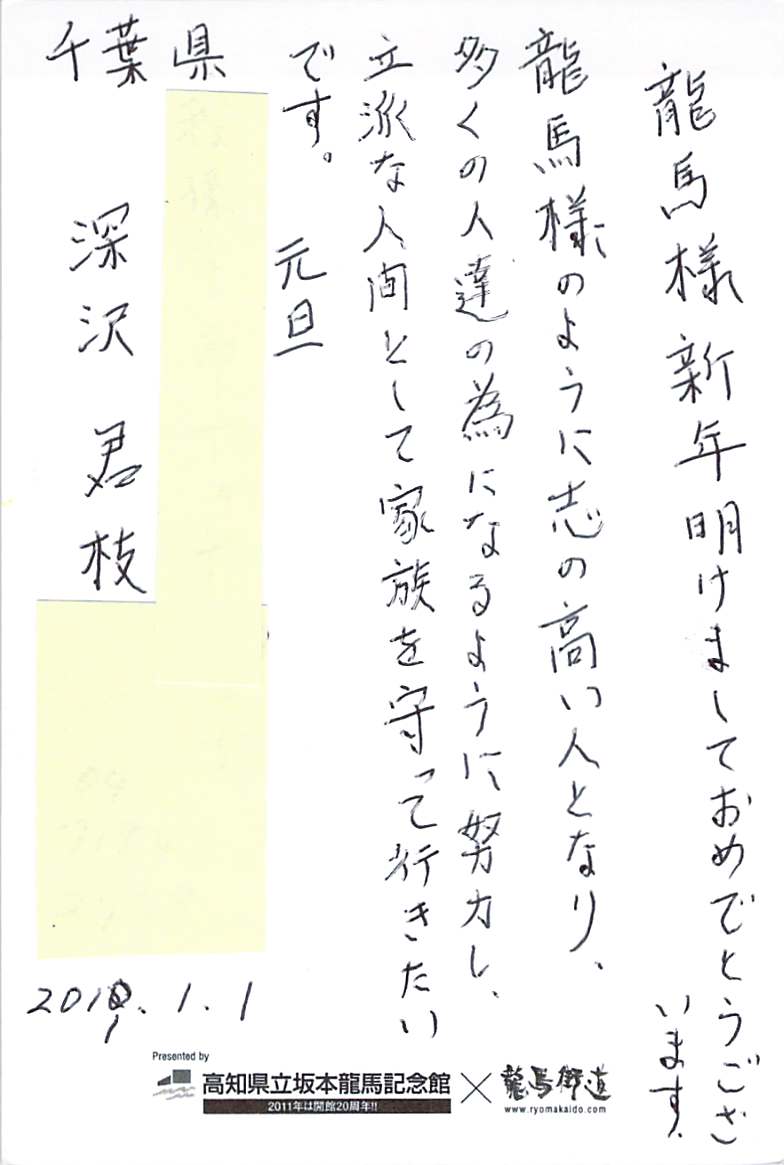 龍馬様新年明けましておめでとうござ
います。
龍馬様のように志の高い人となり、
多くの人達の為になるように努力し、
立派な人間として家族を守って行きたい
です。
元旦
千葉県
深沢 君枝
2011.1.1
Presented by
高知県立坂本龍馬記念館×龍馬街道
2011年は開館20周年!!
www.ryomakaido.com